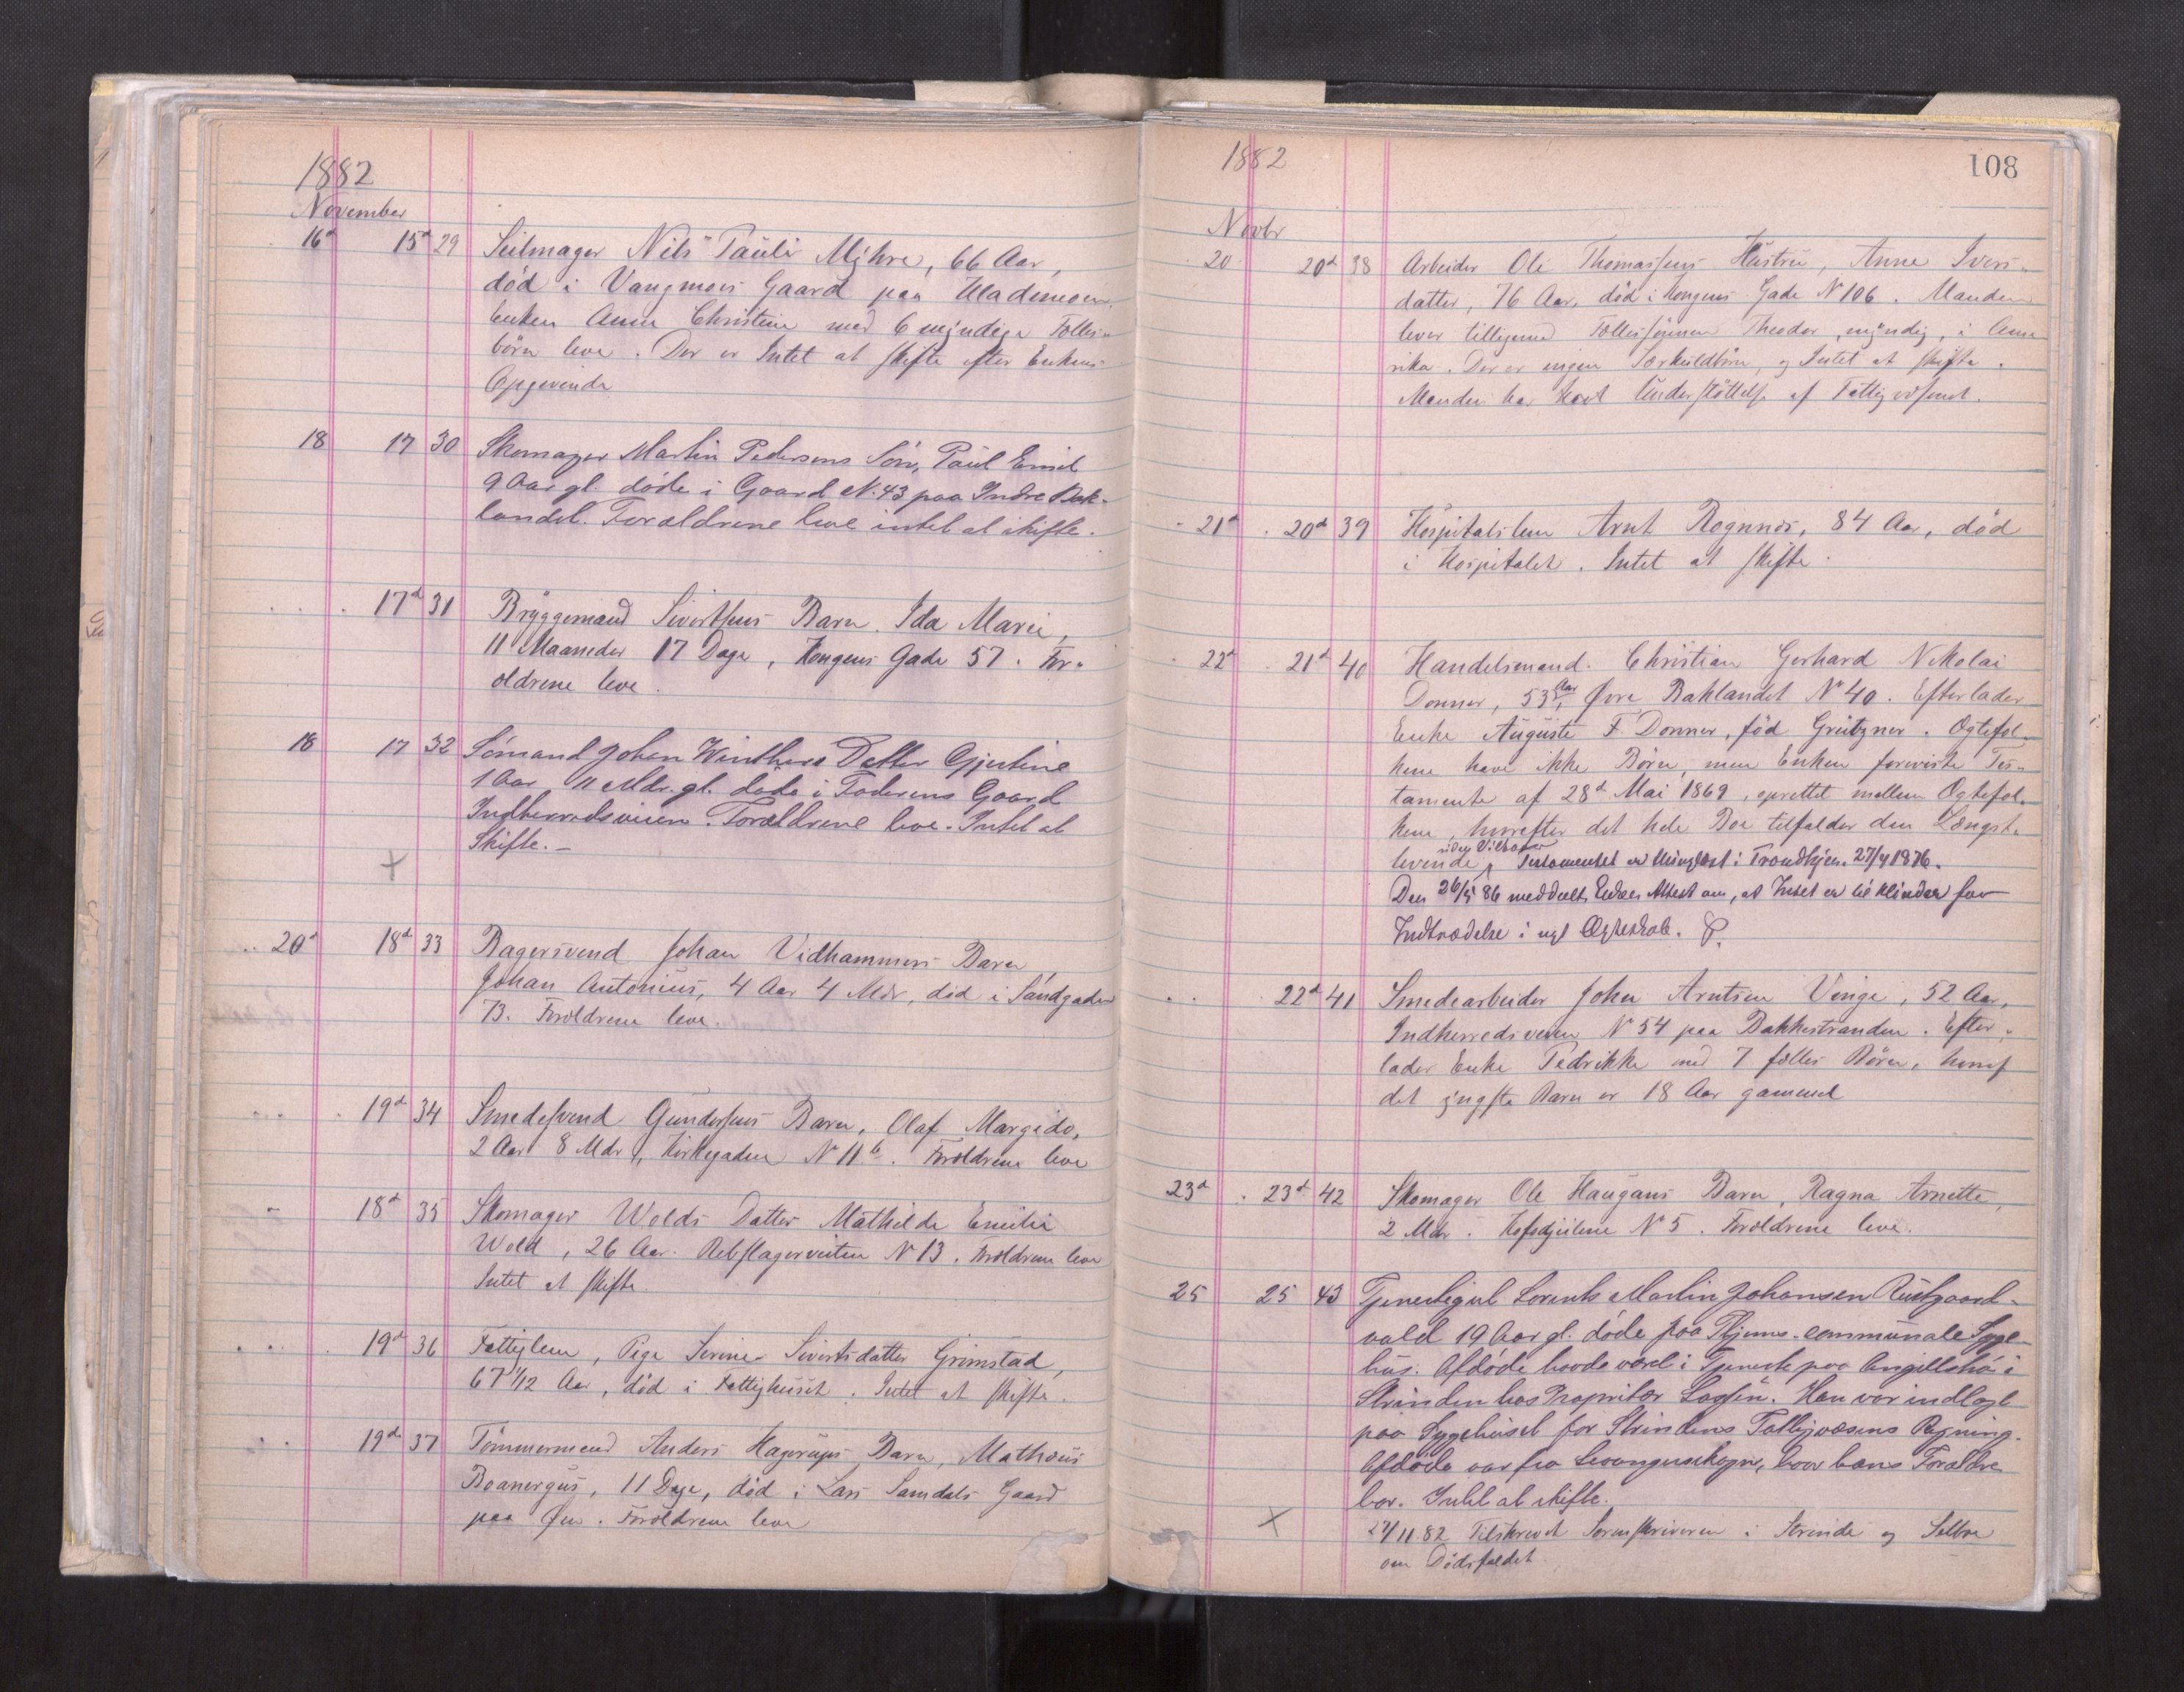 1882
November
16d 15d 29 Seilmager Nils Pauli Myhre, 66 Aar,
død i Vangmoes Gaard paa Ilademoen.
Enken Anne Christine med 6 myndige Fælles-
børn leve. Der er Intet at skifte efter Enkens
Opgivende
18 17 30 Skomager Martin Pedersens Søn, Paul Emil
9 Aar gl. døde i Gaard N. 43 paa Indre Bak-
landet. Forældrene leve intet at skifte.
17d 31 Bryggemand Sivertsens Barn. Ida Marie,
11 Maaneder 17 Dage, Kongens Gade 57. For-
ældrene leve.
18 17 32 Sømand Johan Winthers Datter Gjertine
1 Aar 11 Mdr. gl. døde i Faderens Gaard
Indherredsveien. Forældrene leve. Intet at
Skifte.-
20d 18d 33 Bagersvend Johan Vidhammers Barn
Johan Antonius, 4 Aar 4 Mdr, død i Sandgaden
73. Forældrene leve.
19d 34 Smedesvend Gundersens Barn, Olaf Margido,
2 Aar 8 Mdr, Kirkegaden N 11b. Forældrene leve
- 18d 35 Skomager Wolds Datter Mathilde Emilie
Wold, 26 Aar. Rebslagerveiten N 13. Forældrene leve
Intet at skifte.
19d 36 Fattiglem, Pige Serine Sivertsdatter Grimstad,
67 1/12 Aar, død i Fattighuset. Intet at skifte.
19d 37 Tømmermand Anders Hagerups Barn, Mathæus
Boanergus, 11 Dage, død i Lars Samdals Gaard
paa Øen. Forældrene leve
1882
108
Novbr
20 20d 38 Arbeider Ole Thomassens Hustru, Anne Ivers-
datter, 76 Aar, død i Kongens Gade N 106. Manden
lever tilligemed Fællessønnen Theodor, myndig, i Ame
rika. Der er ingen Særkuldbørn, og Intet at skifte.
Manden har havt Understøttelse af Fattigvæsenet.
21d 20d 39 Hospitalslem Arnt Rognnes, 84 Aar, død
i Hospitalet. Intet at skifte.
22d 21d 40 Handelsmand Christian Gerhard Nikolai
Donner, 53 Aar, Øvre Baklandet N 40. Efterlader
Enke Auguste F. Donner, fød Grützner. Ægtefol-
kene have ikke Børn, men Enken foreviste Tes-
tamente af 28d Mai 1869, oprettet mellem Ægtefol-
kene, hvorefter det hele Boe tilfalder den Længst-
levende uden Vilkaar. Testamentet er thinglæst i Trondhjem 27/4 1876.
Den 26/5 86 meddelt Enken Attest om, at Intet er til Hinder for
Indtrædelse i nyt Ægteskab. P.
22d 41 Smedearbeider John Arntsen Vinge, 52 Aar,
Indherredsveien N 54 paa Bakkestranden. Efter-
lader Enke Pedrikke med 7 fælles Børn, hvoraf
det yngste Barn er 18 Aar gammel
23d 23d 42 Skomager Ole Haugans Barn, Ragna Arnette,
2 Mdr. N 5. Forældrene leve.
25 25 43 Tjenestegut Lorents Martin Johansen Rustgaard-
vald 19 Aar gl. døde paa Thjems communale Syge
hus. Afdøde havde været i Tjeneste paa Angelltrø i
Strinden hos Proprietær Lassen. Han var indlagt
paa Sygehuset for Strindens Fattigvæsens Regning.
Afdøde var fra Levangerskogn, hvor hans Forældre
bor. Intet at skifte.
27/11 82 Tilskrevet Sorenskriveren i Strinde og Selbu
om Dødsfaldet.